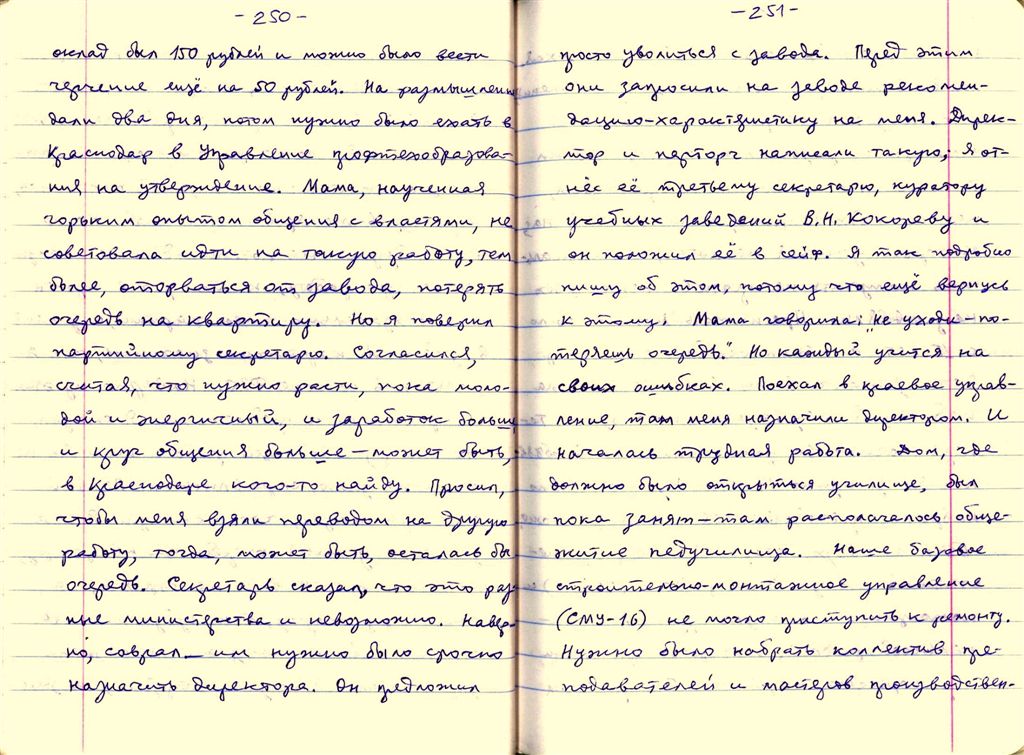 - 250 -
оклад был 150 рублей и можно было вести
черчение ещё на 50 рублей. На размышления
дали два дня, потом нужно было ехать в
Краснодар в Управление профтехобразова-
ния на утверждение. Мама, наученная
горьким опытом общения с властями, не
советовала идти на такую работу, тем
более, оторваться от завода, потерять
очередь на квартиру. Но я поверил
партийному секретарю. Согласился,
считая, что нужно расти, пока моло-
дой и энергичный, и заработок больше
и круг общения больше – может быть,
в Краснодаре кого-то найду. Просил,
чтобы меня взяли переводом на другую
работу, тогда, может быть, осталась бы
очередь. Секретарь сказал, что это раз-
ные министерства и невозможно. Навер-
но, соврал – им нужно было срочно
назначить директора. Он предложил
- 251 -
просто уволиться с завода. Перед этим
они запросили на заводе рекомен-
дацию-характеристику на меня. Дирек-
тор и парторг написали такую, я от-
нёс её третьему секретарю, куратору
учебных заведений В.Н. Кокореву и
он положил её в сейф. Я так подробно
пишу об этом, потому что ещё вернусь
к этому. Мама говорила: „не уходи – по-
теряешь очередь." Но каждый учится на
своих ошибках. Поехал в краевое управ-
ление, там меня назначили директором. И
началась трудная работа. Дом, где
должно было открыться училище, был
пока занят – там располагалось обще-
житие педучилища. Наше базовое
строительно-монтажное управление
(СМУ-16) не могло приступить к ремонту.
Нужно было набрать коллектив пре-
подавателей и мастеров производствен-